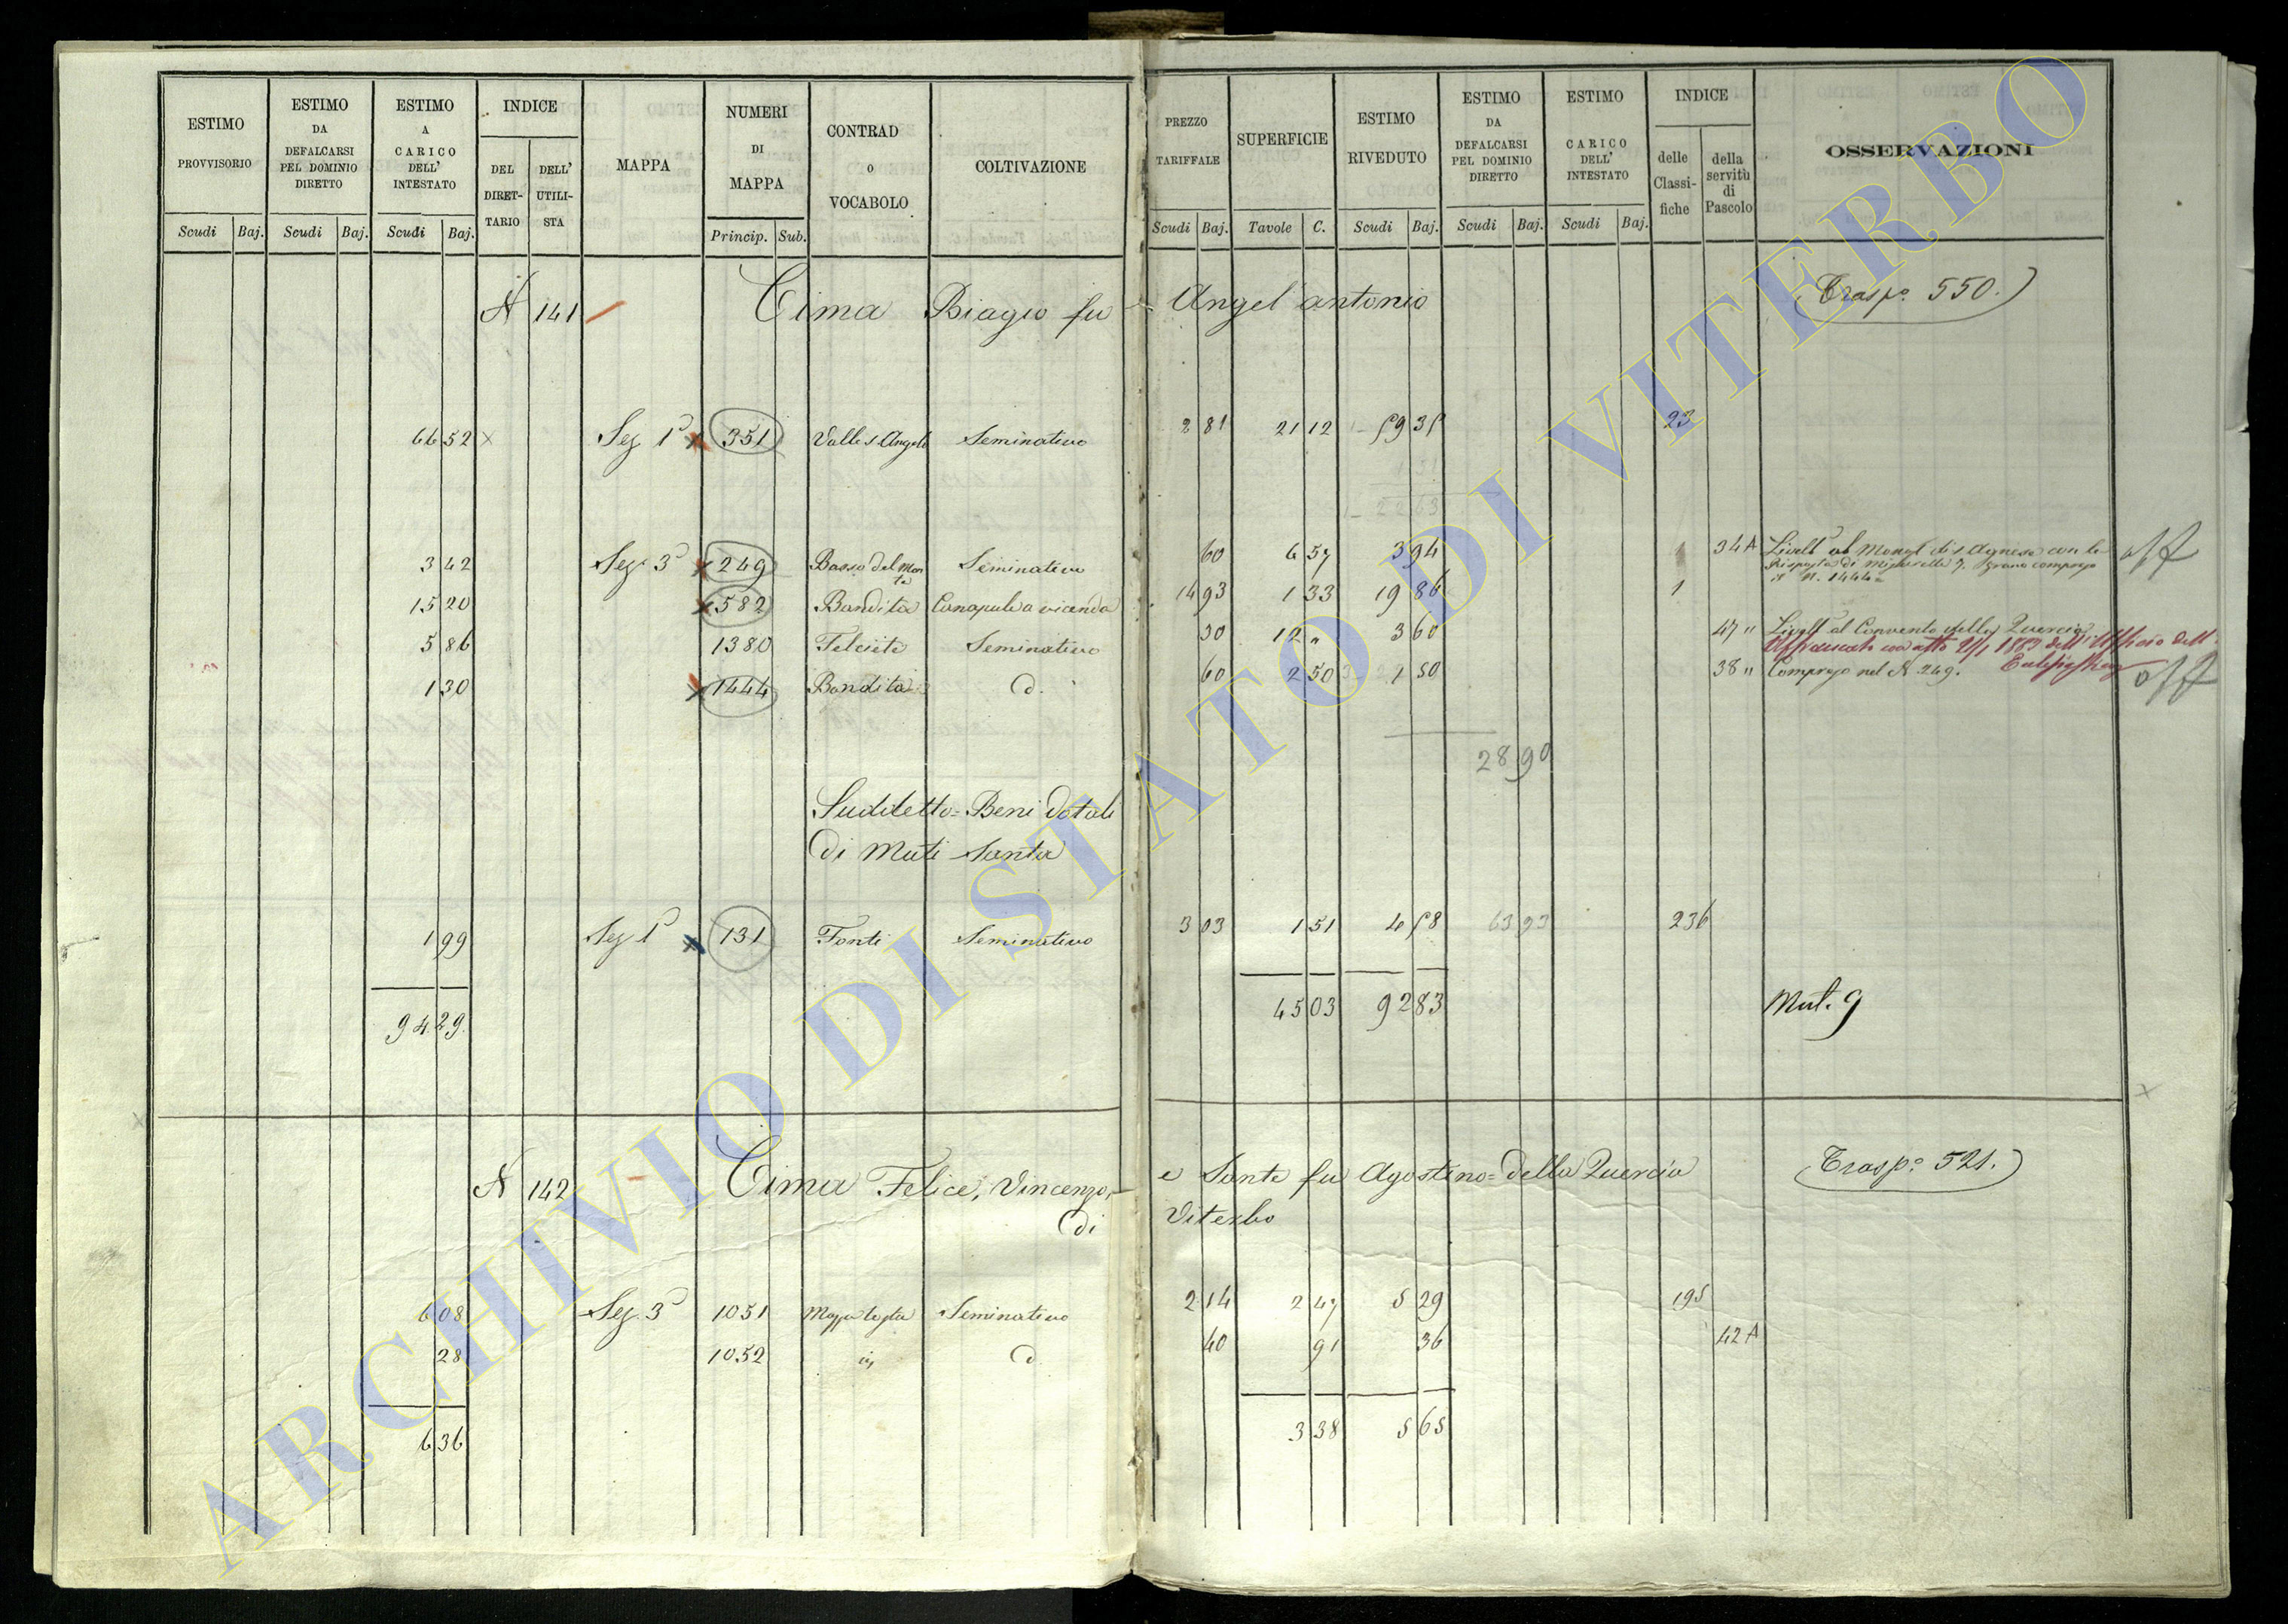 ESTIMO PROVVISORIO
ESTIMO DA DEFALCARSI PEL DOMINIO DIRETTO
ESTIMO A CARICO DELL' INTESTATO
INDICE
DEL DIRET-TARIO
DELL' UTILI-STA
MAPPA
NUMERI DI MAPPA
CONTRAD o VOCABOLO
COLTIVAZIONE
PREZZO TARIFFALE
SUPERFICIE
ESTIMO RIVEDUTO
ESTIMO DA DEFALCARSI PEL DOMINIO DIRETTO
ESTIMO CARICO DELL' INTESTATO
INDICE
delle Classi-fiche
della servitù di Pascolo
OSSERVAZIONI
Scudi Baj. Scudi Baj. Scudi Baj. Princip. Sub. Scudi Baj. Tavole C. Scudi Baj. Scudi Baj. Scudi Baj.
N 141 Cima Biagio fu Angel'antonio (Trasp.o 550.)
66 52 x Sez 1a x 351 Valle s. Angelo Seminativo 2 81 21 12 59 35 23
3 42 Sez 3a x 249 Basso del Monte Seminativo 60 6 57 3 94 1 34 A Livell al Monast. di s. Agnese con la
risposta di grano compreso
il N. 1444
15 20 x 582 Bandita Canapule a vicenda 14 93 1 33 19 86 1
5 86 1380 Felciete Seminativo 30 12 " 3 60 47 " Livell al Convento della Quercia
Affrancato con atto 1883 dell'Ufficio dell
1 30 x 1444 Bandita d. 60 2 50 1 50 38 " Compreso nel N 249.
28 90
Suddetto = Beni dotali
di Muti Santa
1 99 Sez 1a x 131 Fonti Seminativo 3 03 1 51 4 58 63 93 236
94 29 45 03 92 83 Mut. 9
N 142 Cima Felice, Vincenzo, e Sante fu Agostino = della Quercia (Trasp.o 521.)
di Viterbo
6 08 Sez. 3a 1051 Seminativo 2 14 2 47 5 29 195
28 1052 d 40 91 36 42 A
6 36 3 38 5 65
ARCHIVIO DI STATO DI VITERBO